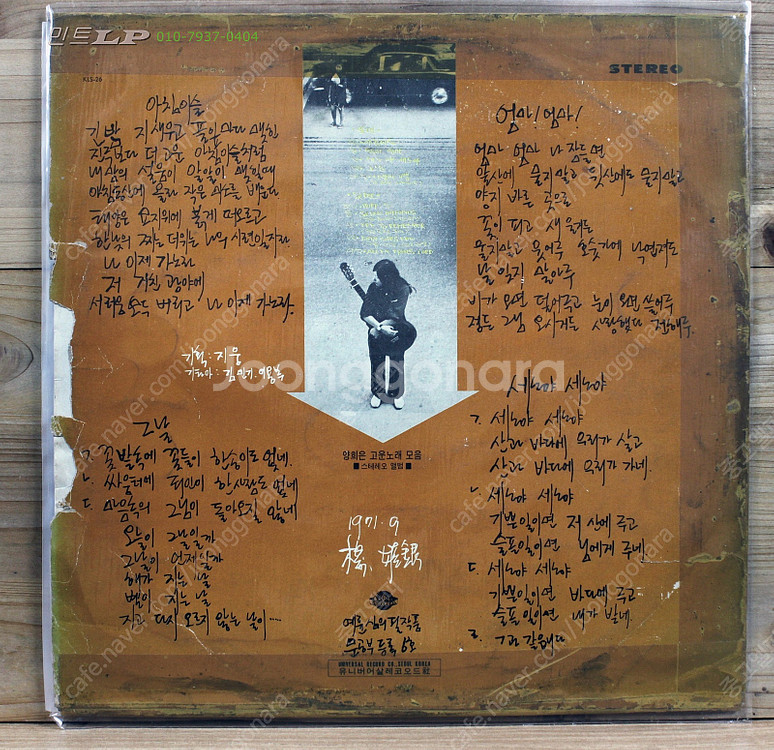 민트LP 010-7937-0404
STEREO
KLS-26
아침이슬
긴밤 지새우고 풀잎마다 맺힌
진주보다 더 고운 아침이슬처럼
내 맘의 설움이 알알이 맺힐때
아침동산에 올라 작은 미소를 배운다
태양은 묘지위에 붉게 떠오르고
한낮의 찌는 더위는 나의 시련일지라
나 이제 가노라
저 거친 광야에
서러움 모두 버리고 나 이제 가노라.
기획 : 지웅
기타아 : 김민기.이용복
그날
ㄱ. 꽃밭속에 꽃들이 한송이도 없네.
ㄴ. 싸움터에 죄인이 한사람도 없네
ㄷ. 마음속의 그님이 돌아오질 않네
오늘이 그날일까
그날이 언제일까
해가 지는 날
별이 지는 날
지고 다시 오르지 않는 날이....
양희은 고운노래 모음
■ 스테레오 앨범 ■
1971. 9
楊 姬銀
문공부 등록 6호
UNIVERSAL RECORD CO. SEOUL KOREA
유니버어살레코오드社
엄마! 엄마!
엄마 엄마 나 잠들면
앞산에 묻지말고 뒷산에도 묻지말고
양지 바른 곳으로
꽃이 피고 새 울거든
울지말고 웃어주
날 잊지 말아주
비가 오면 덮어주고 눈이 오면 쓸어주
정든 그님 오시거든 사랑했다 전해주
세노야 세노야
ㄱ. 세노야 세노야
산과 바다에 우리가 살고
산과 바다에 우리가 가네.
ㄴ. 세노야 세노야
기쁜일이면 저 산에 주고
슬픈일이면 님에게 주네.
ㄷ. 세노야 세노야
기쁜일이면 바다에 주고
슬픈일이면 내가 받네.
ㄹ. ㄱ과 같읍니다
Joonggonara
cafe.naver.com/joonggonara